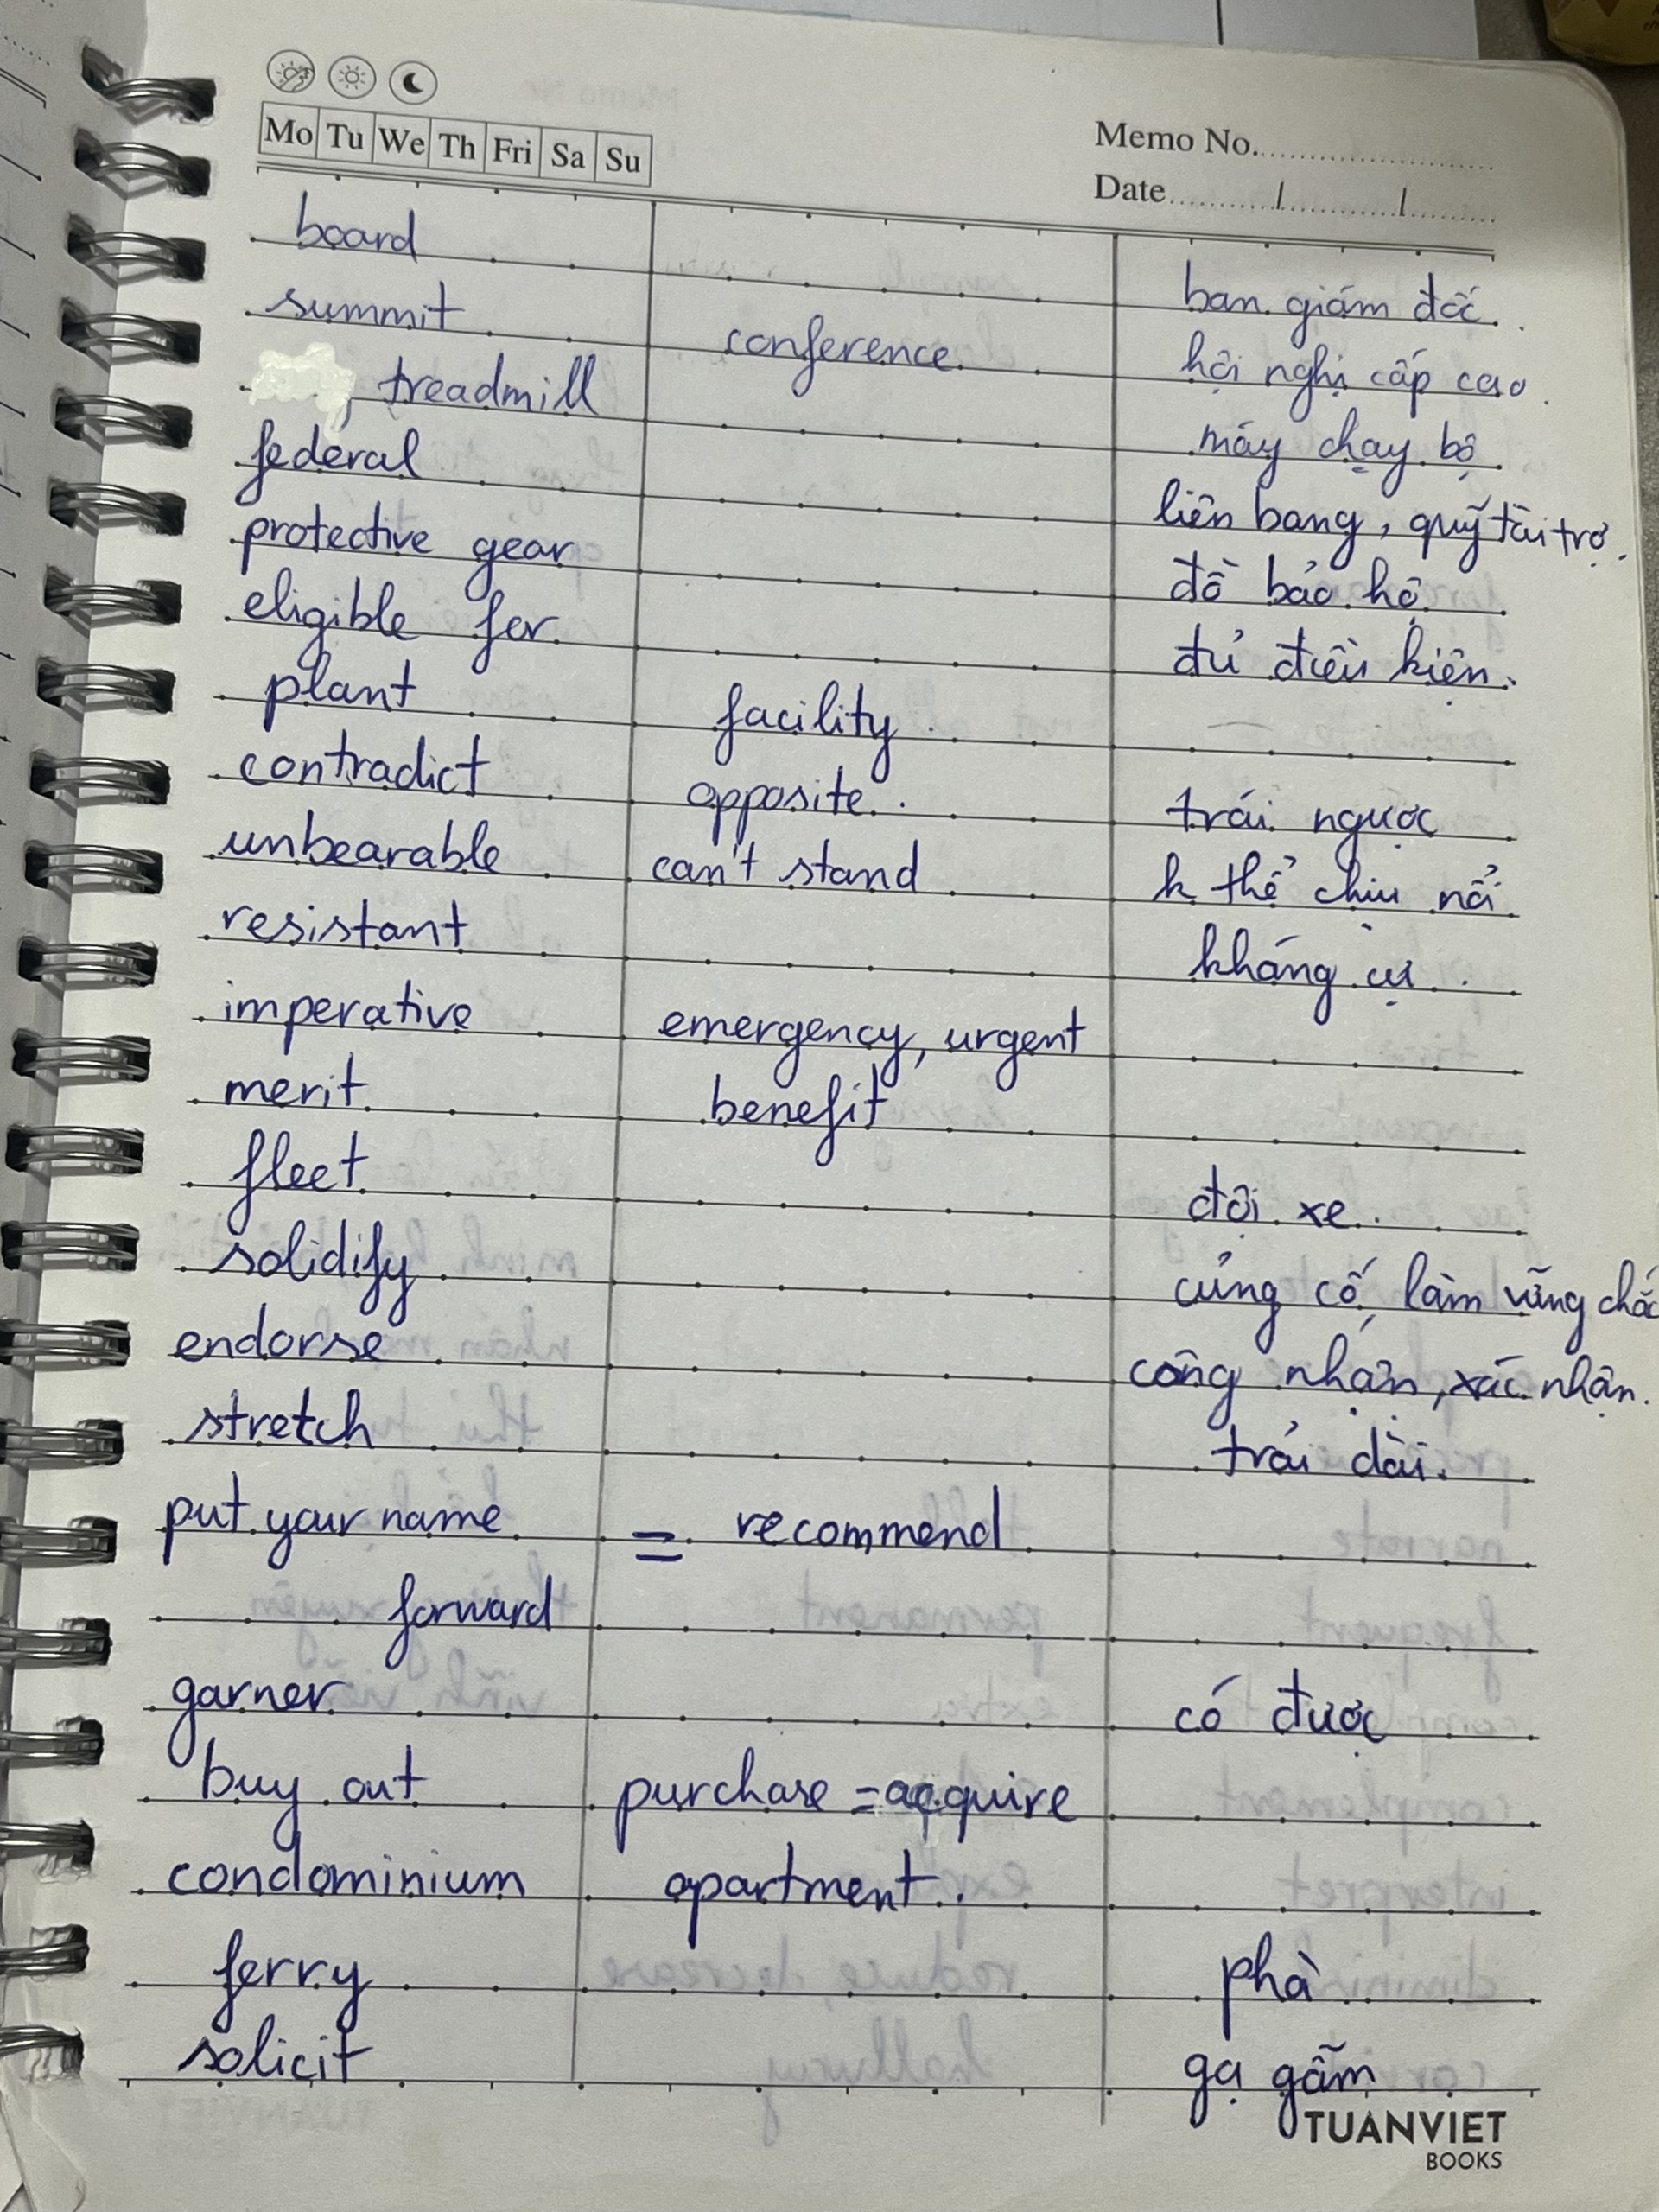 Mo Tu We Th Fri Sa Su
Memo No.
Date / /
board ban giám đốc.
summit conference hội nghị cấp cao.
, treadmill máy chạy bộ
federal liên bang, quỹ tài trợ.
protective gear đồ bảo hộ
eligible for đủ điều kiện.
plant facility. —
contradict opposite. trái ngược
unbearable can't stand k thể chịu nổi
resistant kháng cự.
imperative emergency, urgent
merit benefit
fleet đội xe.
solidify củng cố, làm vững chắc
endorse công nhận, xác nhận.
stretch trải dài.
put your name = recommend
forward
garner có được
buy out purchase = acquire
condominium apartment.
ferry phà
solicit gạ gẫm
TUANVIET
BOOKS